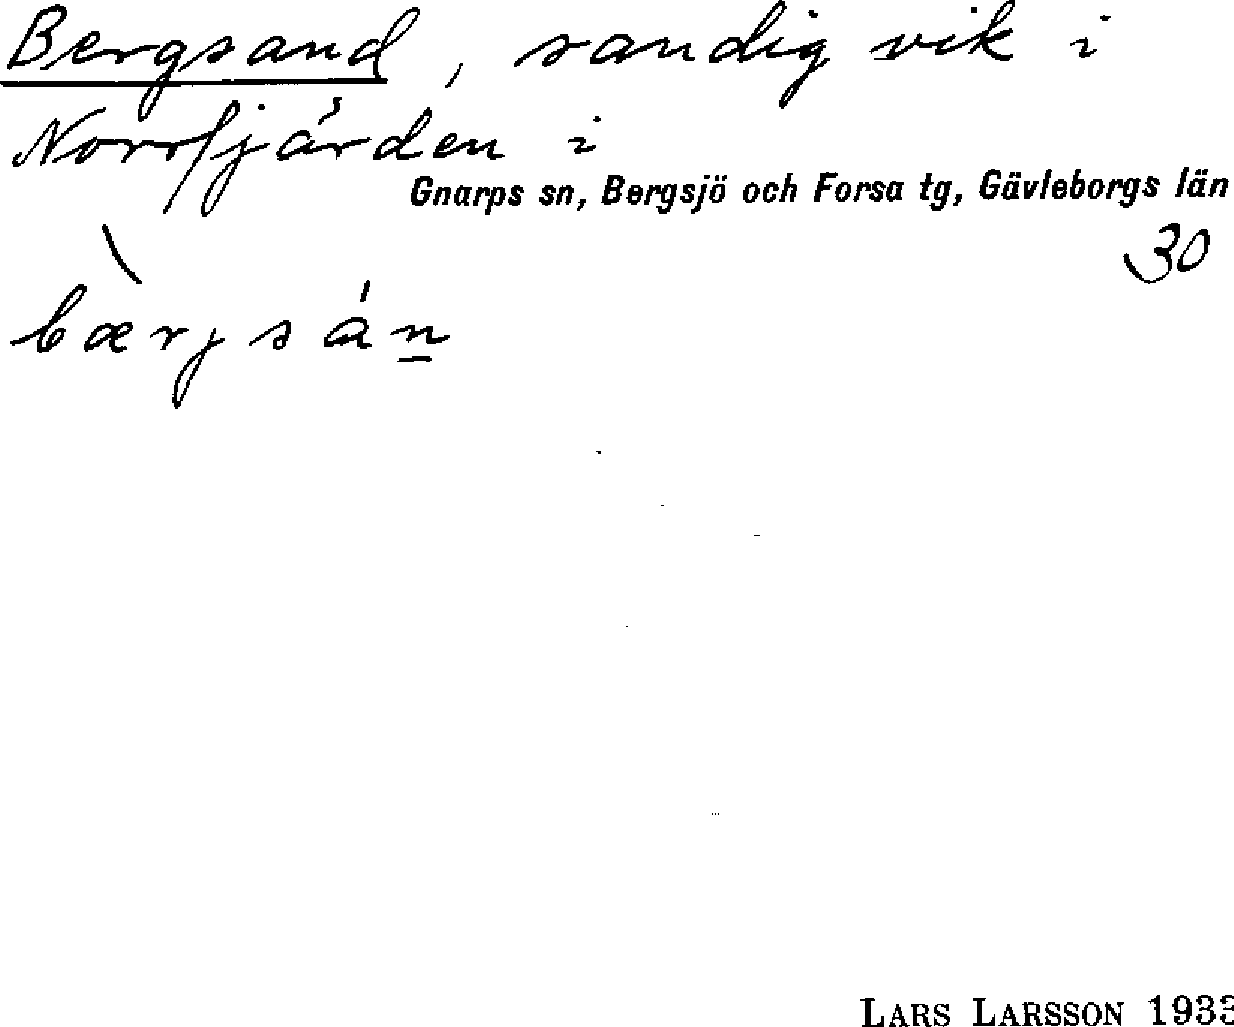 Bergsand, sandig vik i
Norrfjärden i
Gnarps sn, Bergsjö och Forsa tg, Gävleborgs län
30
bærjsan
LARS LARSSON 1933